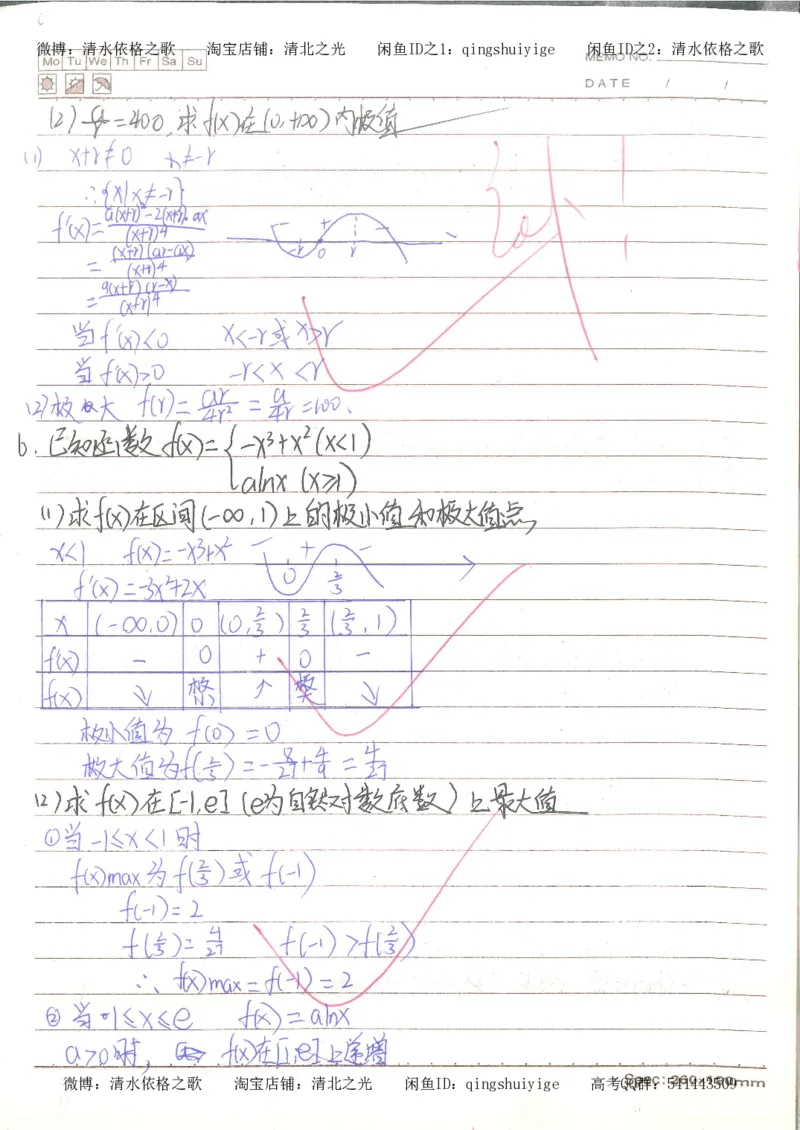 微博：清水依格之歌 淘宝店铺：清北之光 闲鱼ID之1：qingshuiyige 闲鱼ID之2：清水依格之歌
Mo Tu We Th Fr Sa Su
MEMO NO.
DATE / /
(2) =400,求f(x)在(0,+∞)内极值
(1) x+r≠0 x≠-r
∴{x|x≠-r}
f'(x)=(a(x+r)²-2(x+r)·ax)/(x+r)⁴
=(x+r)(ar-ax)/(x+r)⁴
=a(x+r)(r-x)/(x+r)⁴
- + -
-r 0 r
当f'(x)<0 x<-r或x>r
当f'(x)>0 -r<x<r
(2)极大 f(r)=ar/4r²=a/4r=100.
6.已知函数f(x)={-x³+x²(x<1)
alnx (x≥1)
(1)求f(x)在区间(-∞,1)上的极小值和极大值点,
x<1 f(x)=-x³+x²
f'(x)=-3x²+2x
- + -
0 2/3
x (-∞,0) 0 (0,2/3) 2/3 (2/3,1)
f'(x) - 0 + 0 -
f(x) ↘ ↗ ↘
极小值为f(0)=0
极大值为f(2/3)=-8/27+4/9=4/27
(2)求f(x)在[-1,e](e为自然对数底数)上最大值
①当-1≤x<1时
f(x)max为f(2/3)或f(-1)
f(-1)=2
f(2/3)=4/27 f(-1)>f(2/3)
∴f(x)max=f(-1)=2
②当1≤x≤e f(x)=alnx
a>0时, f(x)在[1,e]上递增
微博：清水依格之歌 淘宝店铺：清北之光 闲鱼ID：qingshuiyige 高考QQ群：541443509